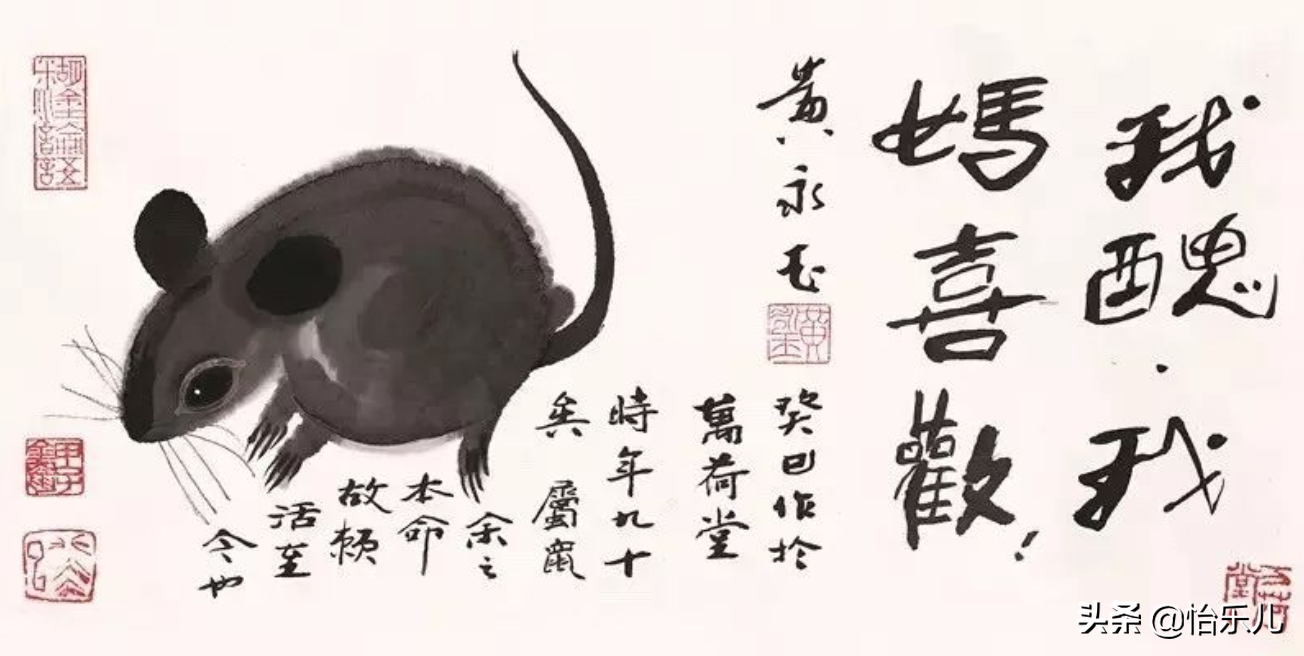 我醜.我
媽喜歡!
黃永玉
癸巳作於
萬荷堂
時年九十
矣 屬鼠
余之
本命
故賴
活至
今也
头条 @怡乐儿